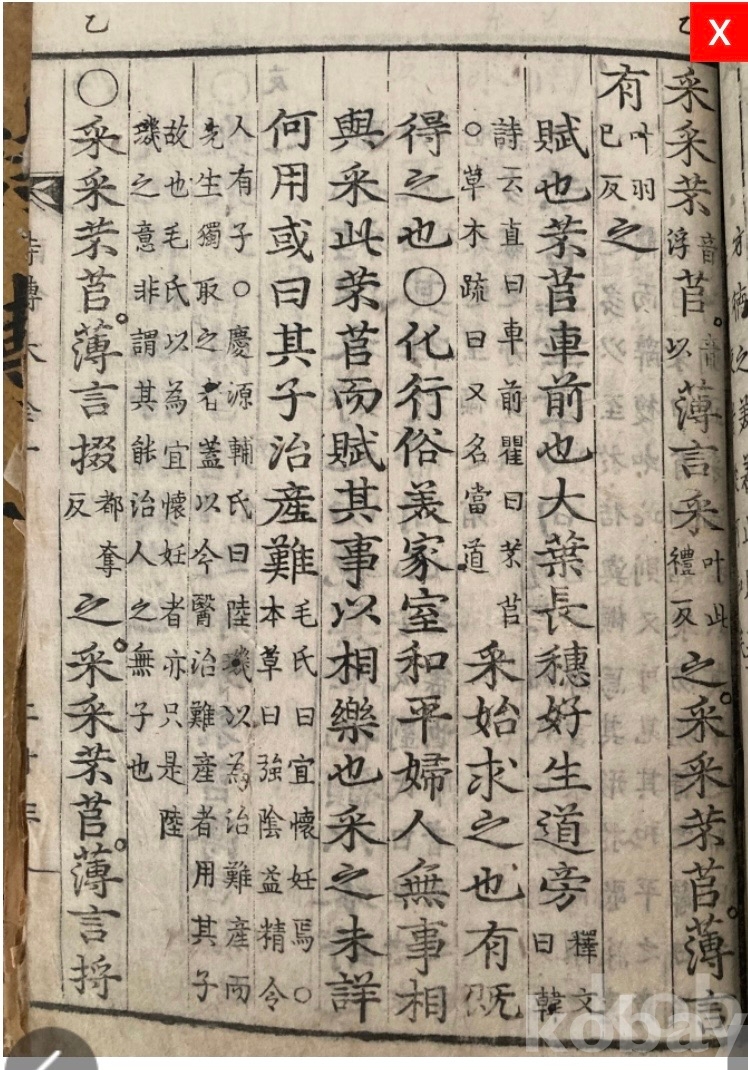 乙
乙
X
采采芣音浮苢音以。薄言采叶此禮反之。采采芣苢。薄言
有叶羽已反之
賦也芣苢車前也大葉長穗好生道旁釋文曰韓
詩云直曰車前瞿曰芣苢○草木疏曰又名當道采始求之也有既
得之也○化行俗美家室和平婦人無事相
與采此芣苢而賦其事以相樂也采之未詳
何用或曰其子治產難毛氏曰宜懷妊焉○本草曰強陰益精令
人有子○慶源輔氏曰陸璣以為治難產而
先生獨取之者蓋以今醫治難產者用其子
故也毛氏以為宜懷妊者亦只是陸
璣之意非謂其能治人之無子也
○采采芣苢。薄言掇都奪反之。采采芣苢。薄言捋
詩傳大全一
kobay